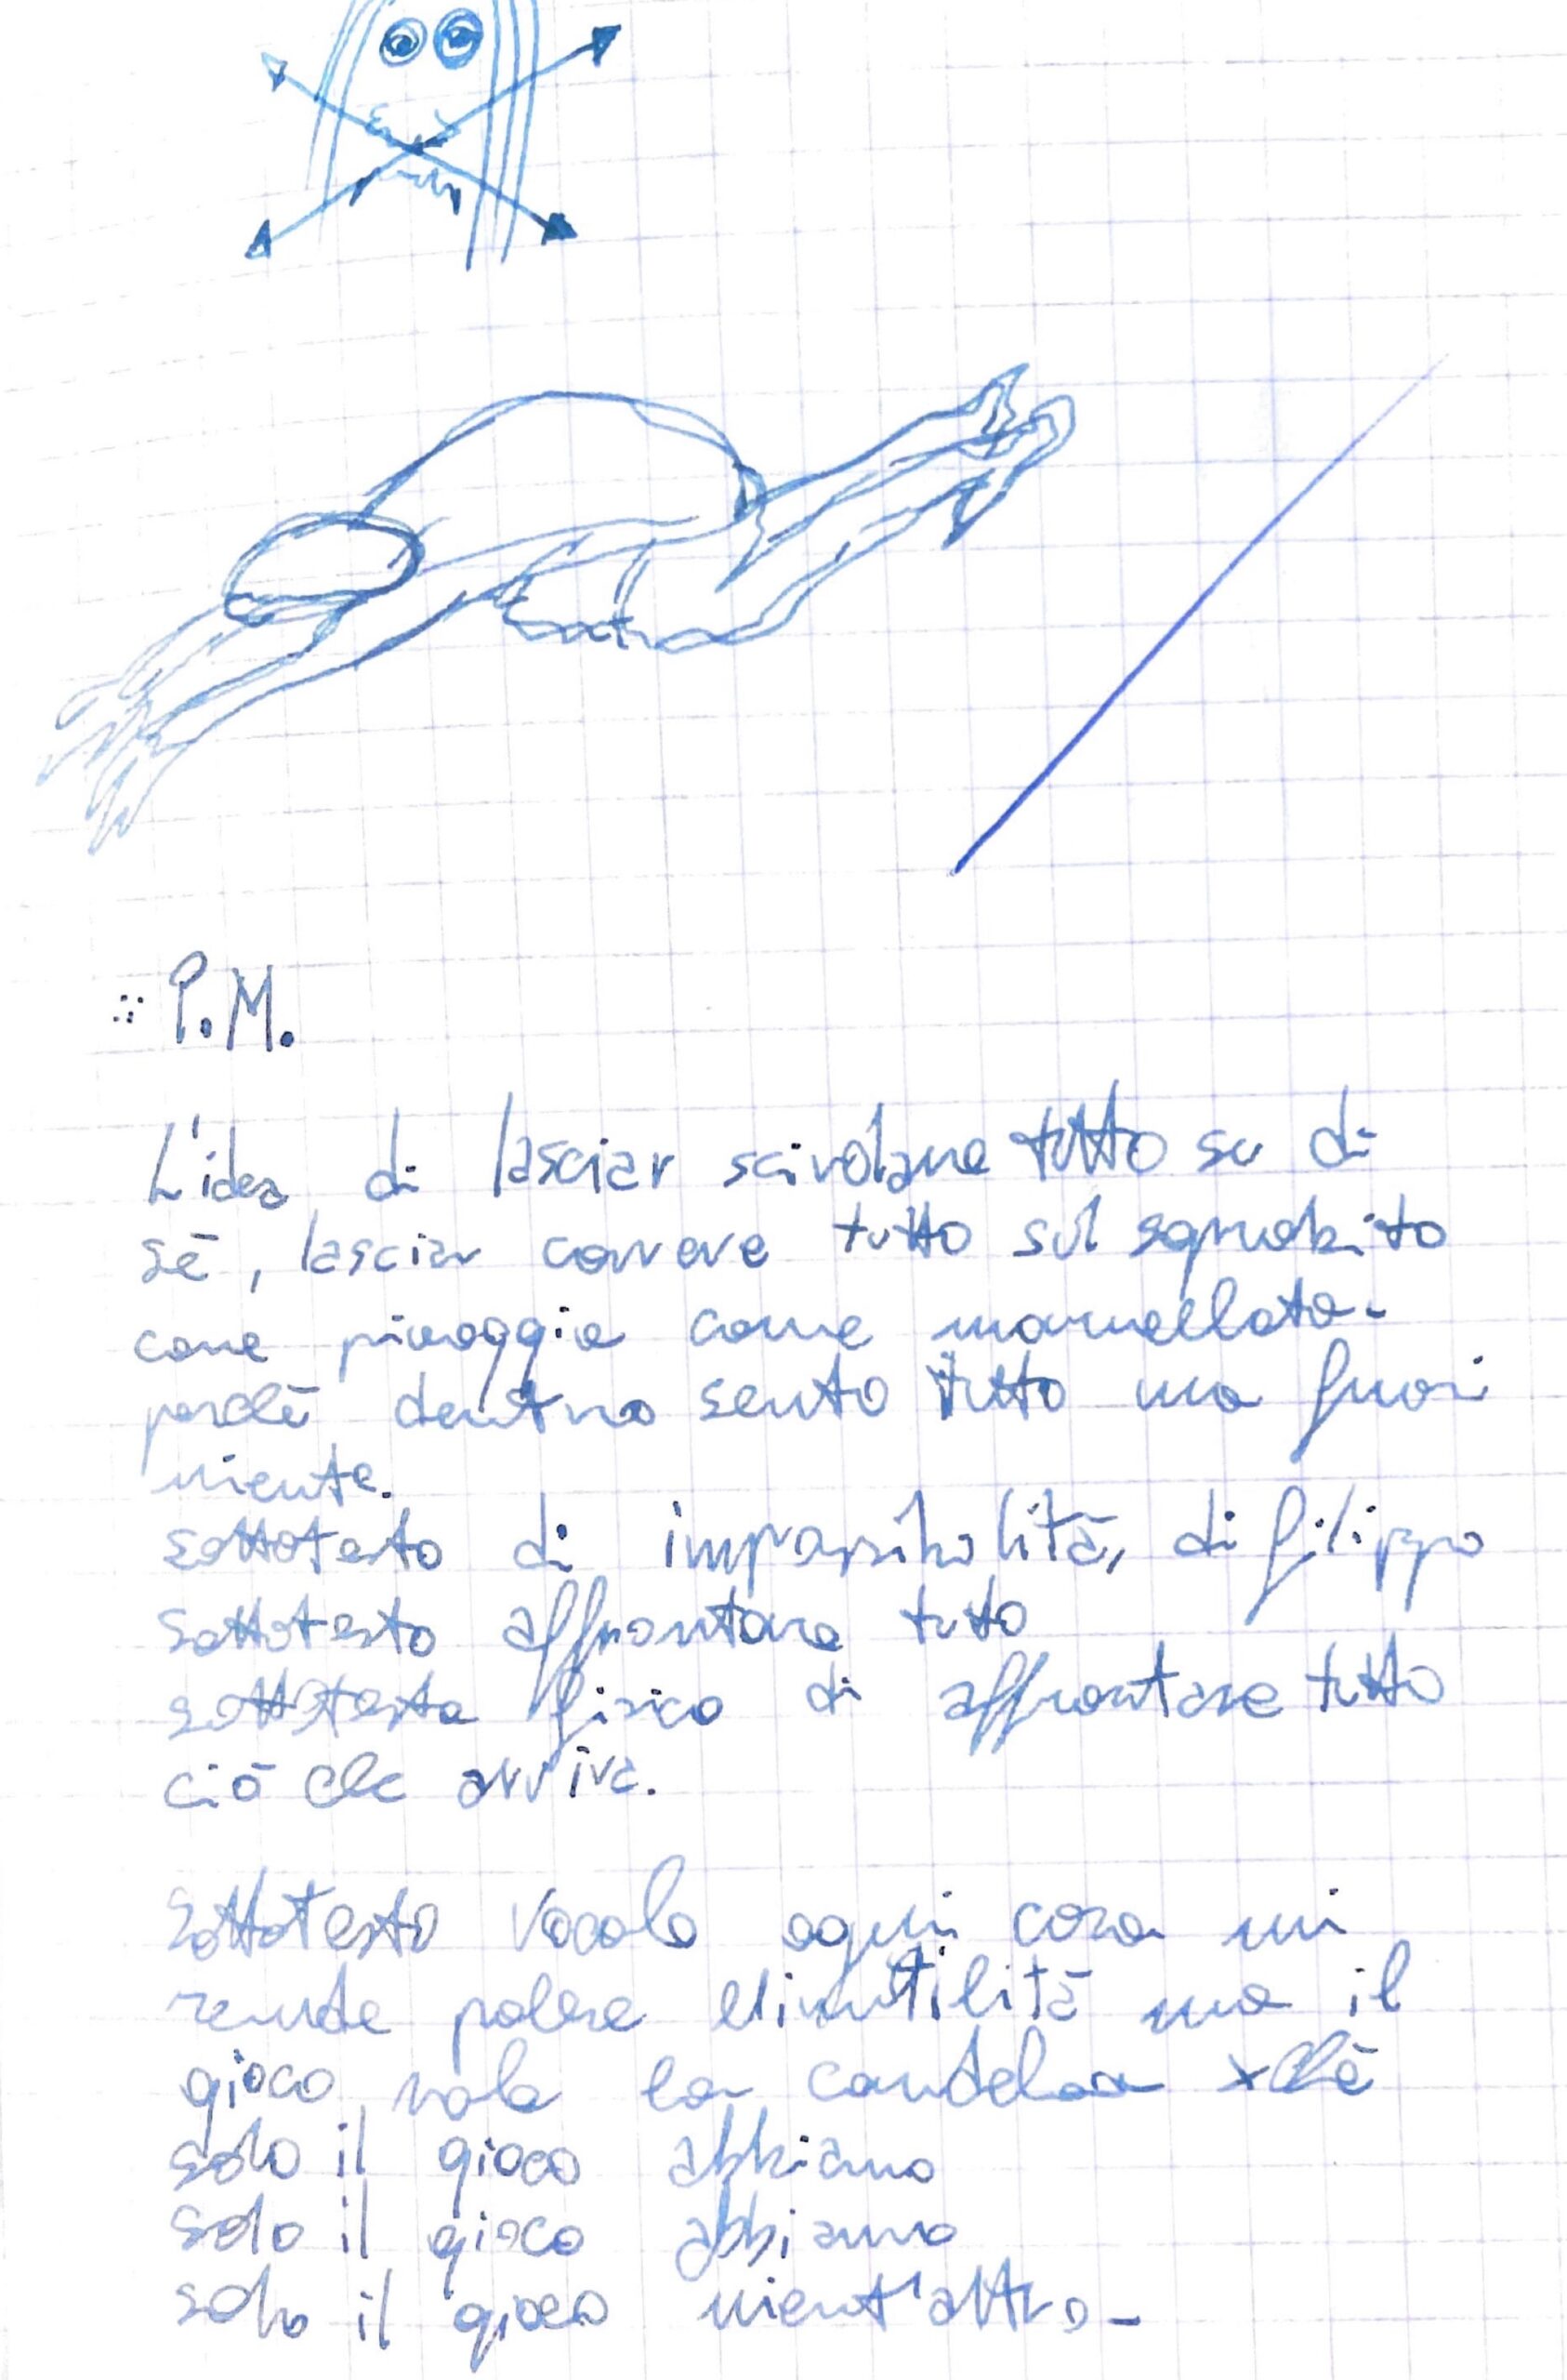 P.M.
L'idea di lasciar scivolare tutto su di
sé, lasciar correre tutto sul
come pioggia come marmellata.
perché dentro sento tutto ma fuori
niente.
sottotesto di impassibilità, di filippo
sottotesto affrontare tutto
sottotesto fisico di affrontare tutto
ciò che arriva.
sottotesto vocale ogni cosa mi
rende palese l'inutilità ma il
gioco vale la candela xchè
solo il gioco abbiamo
solo il gioco abbiamo
solo il gioco nient'altro-